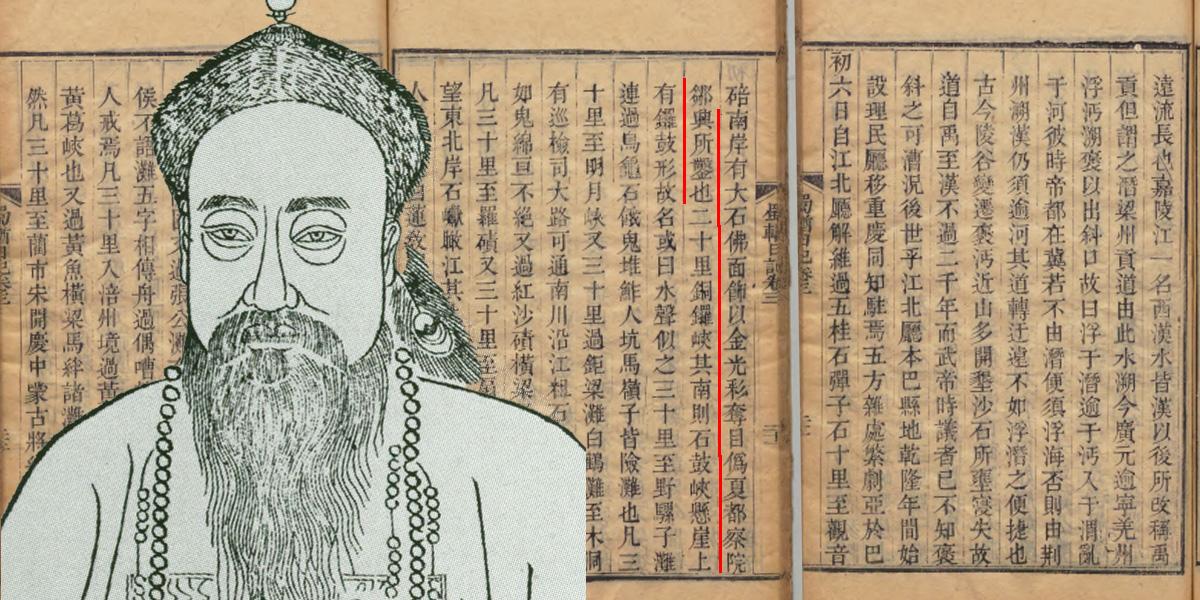 遠流長也嘉陵江一名西漢水昔漢以後所改稱禹
貢但謂之潛梁州貢道由此水溯今廣元逾寧羌州
浮沔溯褒以出斜口故曰浮于潛逾于沔入于渭亂
于河彼時帝都在冀若不由潛便須浮海否則由荆
州溯漢仍須逾河其道轉迂遠不如浮潛之便捷也
古今陵谷變遷褒沔近山多開墾沙石所壅寖失故
道自禹至漢不過二千年而武帝時議者已不知褒
斜之可漕況後世乎江北廳本巴縣地乾隆年間始
設理民廳移重慶同知駐焉五方雜處繁劇亞於巴
初六日自江北廳解維過五桂石彈子石十里至觀音
蜀輶日記卷三
碚南岸有大石佛面飾以金光彩奪目偽夏都察院
鄒興所鑿也二十里銅鑼峽其南則石鼓峽懸崖上
有鑼鼓形故名或曰水聲似之三十里至野騾子灘
連過烏龜石餓鬼堆鮓人坑馬嶺子皆險灘也凡三
十里至明月峽又三十里過鉅梁灘白鶴灘至木洞
有巡檢司大路可通南川沿江粗石
如鬼綿亘不絕又過紅沙磧橫梁
凡三十里至羅磧又三十里至
望東北岸石巘瞰江其
人
侯不語灘五字相傳舟過偶嘈
人戒焉凡三十里入涪州境過黃
黃葛峽也又過黃魚橫梁馬絆諸灘
然凡三十里至藺市宋開慶中蒙古將